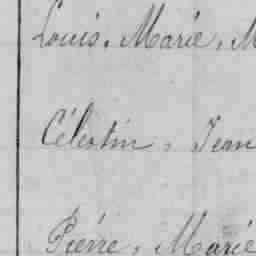 Louis, Marie, M
Célestin, Jean
Pierre, Marie